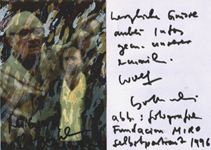 herzliche Grüsse
anbei Infos
gem. unserer
email.
Wolf
abb: fotografie
Fundacion MIRO
selbstportrait 1996